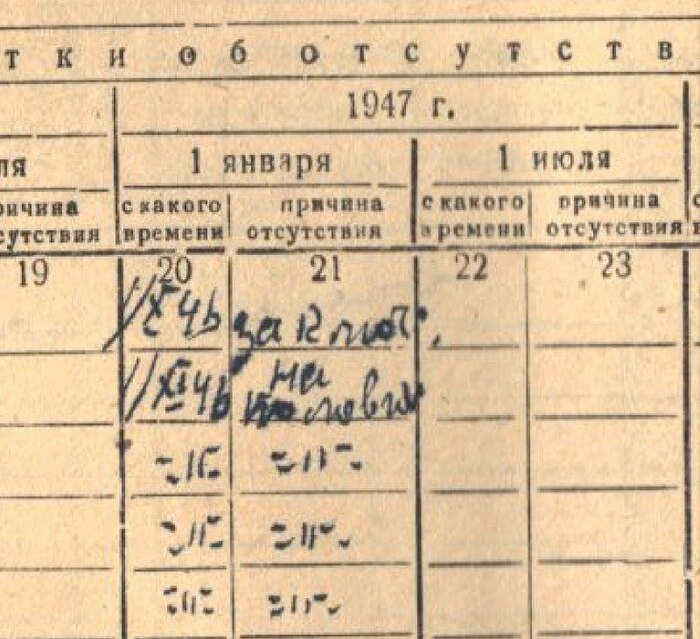 тки об отсутств
1947 г.
ля 1 января 1 июля
ричина с какого причина с какого причина
сутствия времени отсутствия времени отсутствия
19 20 21 22 23
X 46 заключ.
XI 46 на
-"- -"-
-"- -"-
-"- -"-